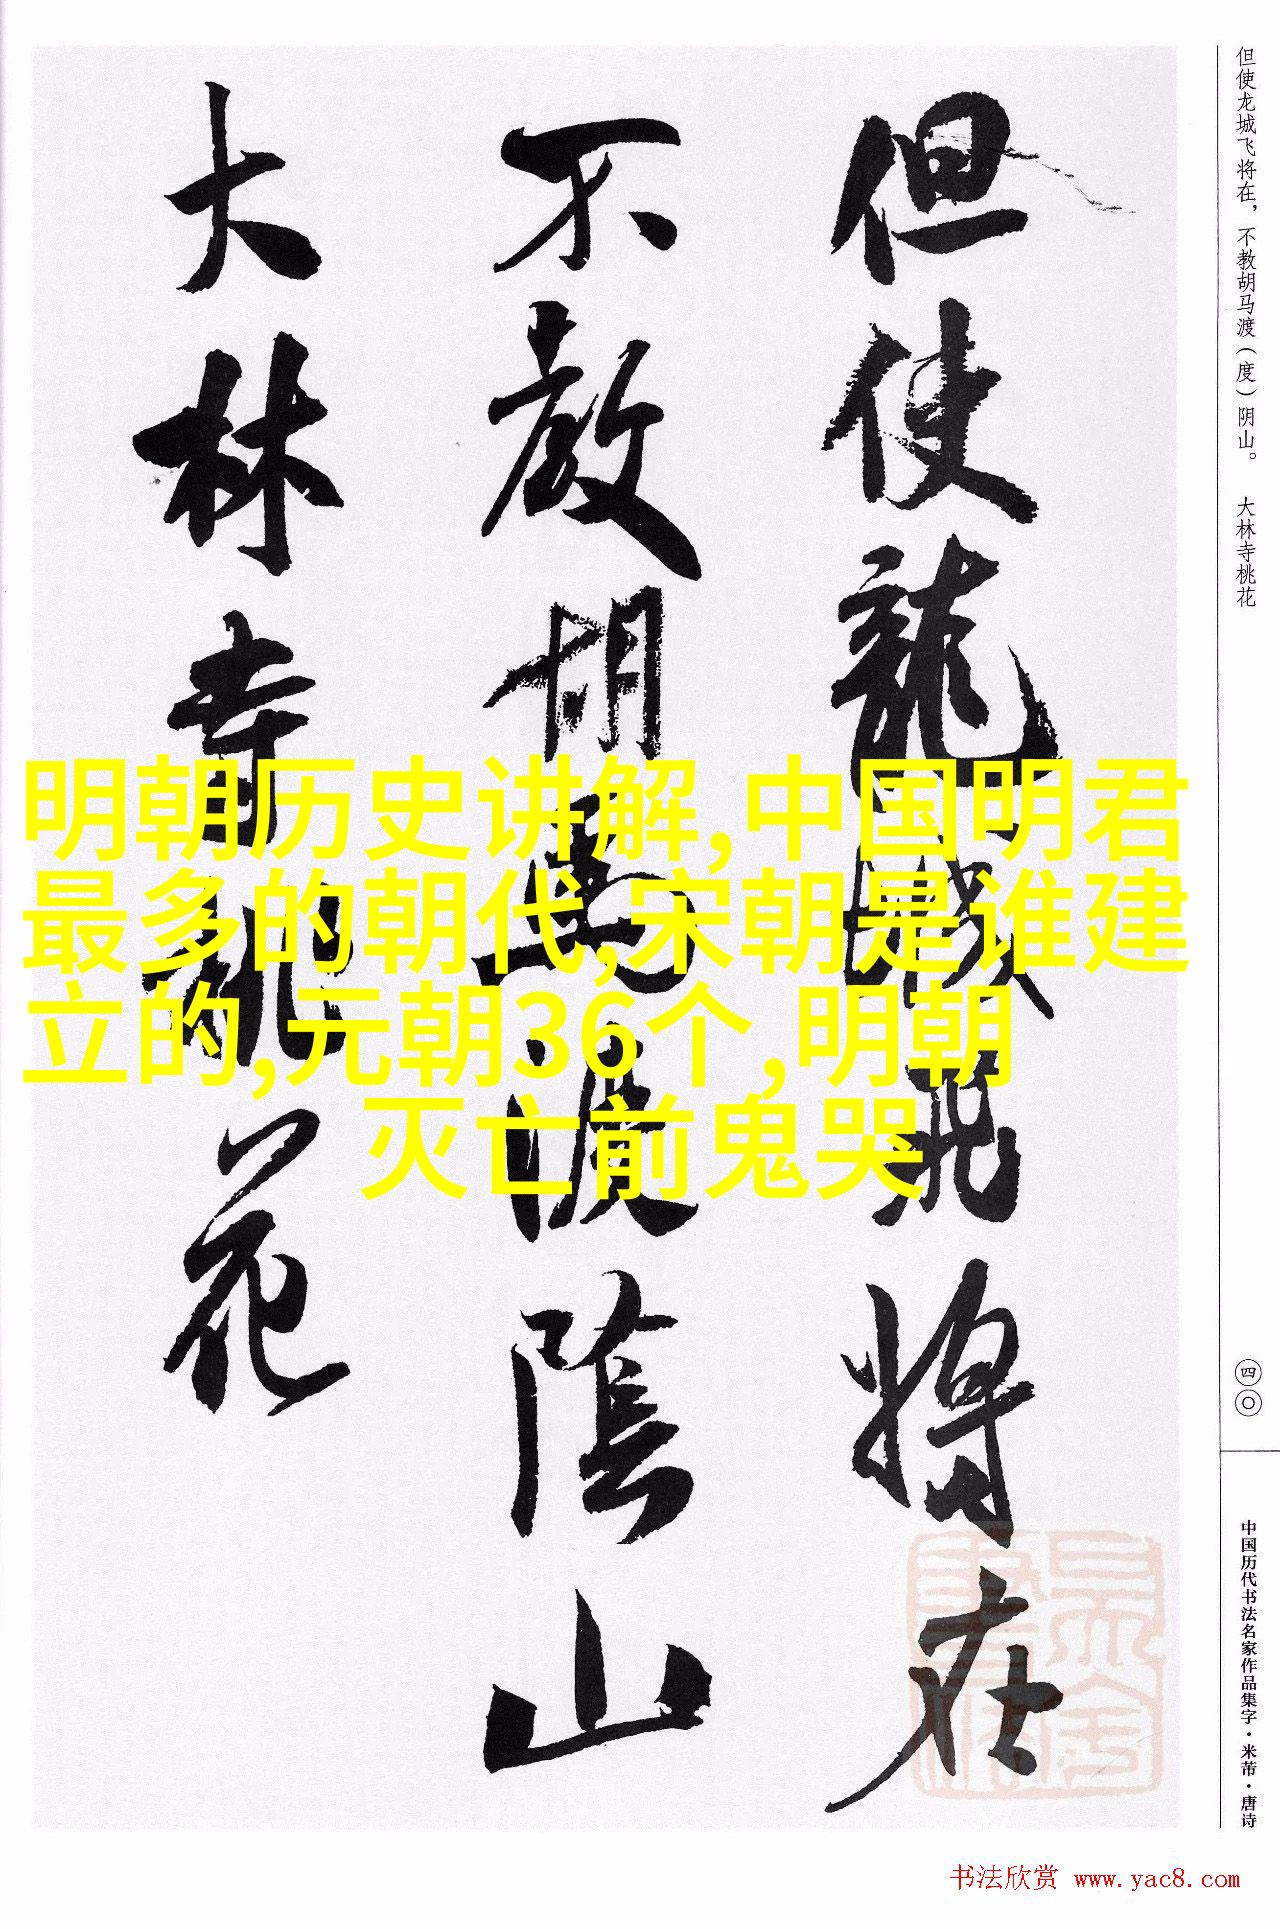 但使龙城飞将在，不教胡马渡（度）阴山。 大林寺桃花
但使龍城飛將在
不教胡馬渡陰山
大林寺桃花
明朝历史讲解,中国明君
最多的朝代,宋朝是谁建
立的,元朝36个,明朝
灭亡前鬼哭
四〇
中国历代书法名家作品集字·米芾·唐诗
书法欣赏 www.yac8.com